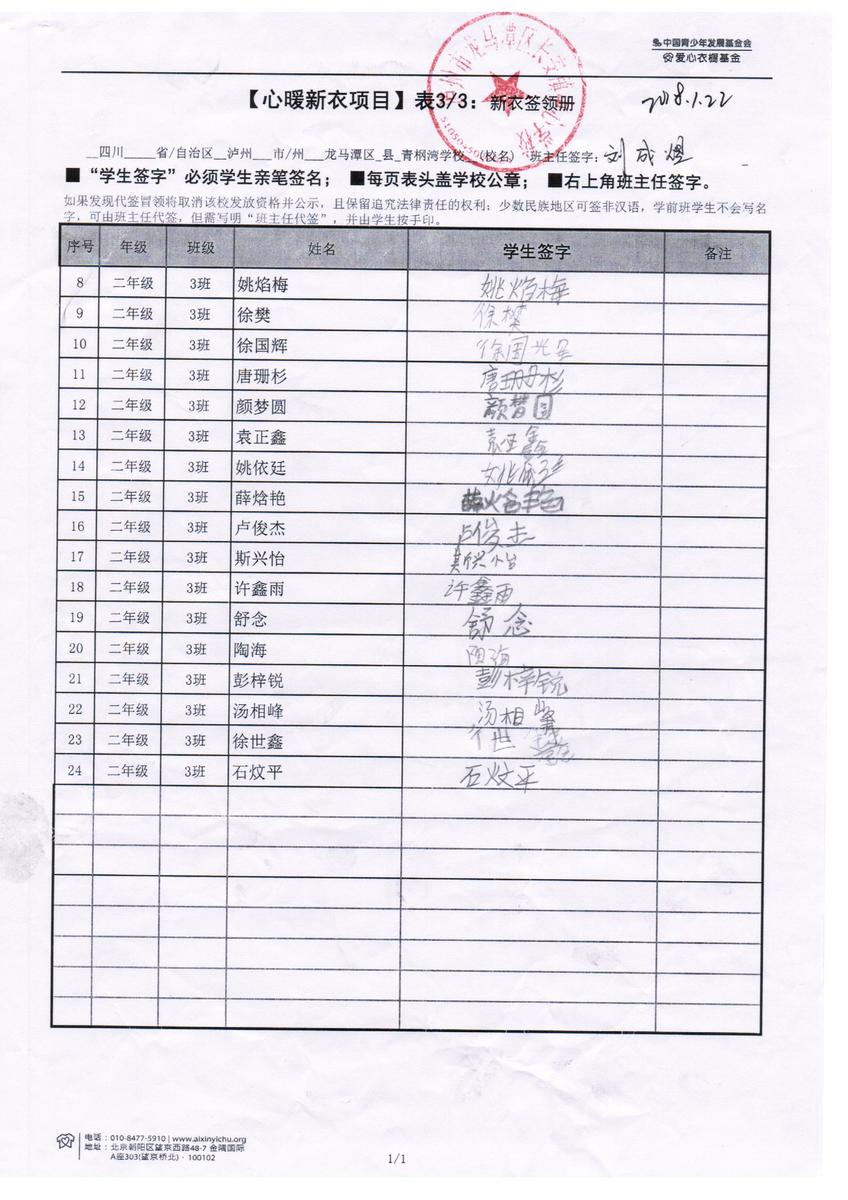 中国青少年发展基金会
爱心衣橱基金
【心暖新衣项目】表3/3：新衣签领册 2018.1.22
__四川_____省/自治区__泸州___市/州___龙马潭区_县_青㭎湾学校__(校名) 班主任签字：
■“学生签字”必须学生亲笔签名； ■每页表头盖学校公章； ■右上角班主任签字。
如果发现代签冒领将取消该校发放资格并公示，且保留追究法律责任的权利；少数民族地区可签非汉语，学前班学生不会写名
字，可由班主任代签，但需写明“班主任代签”，并由学生按手印。
序号 年级 班级 姓名 学生签字 备注
8 二年级 3班 姚焰梅 姚焰梅
9 二年级 3班 徐樊 徐樊
10 二年级 3班 徐国辉 徐国辉
11 二年级 3班 唐珊杉 唐珊杉
12 二年级 3班 颜梦圆 颜梦圆
13 二年级 3班 袁正鑫 袁正鑫
14 二年级 3班 姚依廷
15 二年级 3班 薛焓艳 薛焓艳
16 二年级 3班 卢俊杰 卢俊杰
17 二年级 3班 斯兴怡 斯兴怡
18 二年级 3班 许鑫雨 许鑫雨
19 二年级 3班 舒念 舒念
20 二年级 3班 陶海
21 二年级 3班 彭梓锐 彭梓锐
22 二年级 3班 汤相峰 汤相峰
23 二年级 3班 徐世鑫
24 二年级 3班 石炆平 石炆平
电话：010-8477-5910 | www.aixinyichu.org
地址：北京朝阳区望京西路48-7 金隅国际
A座303(望京桥北) · 100102
1/1